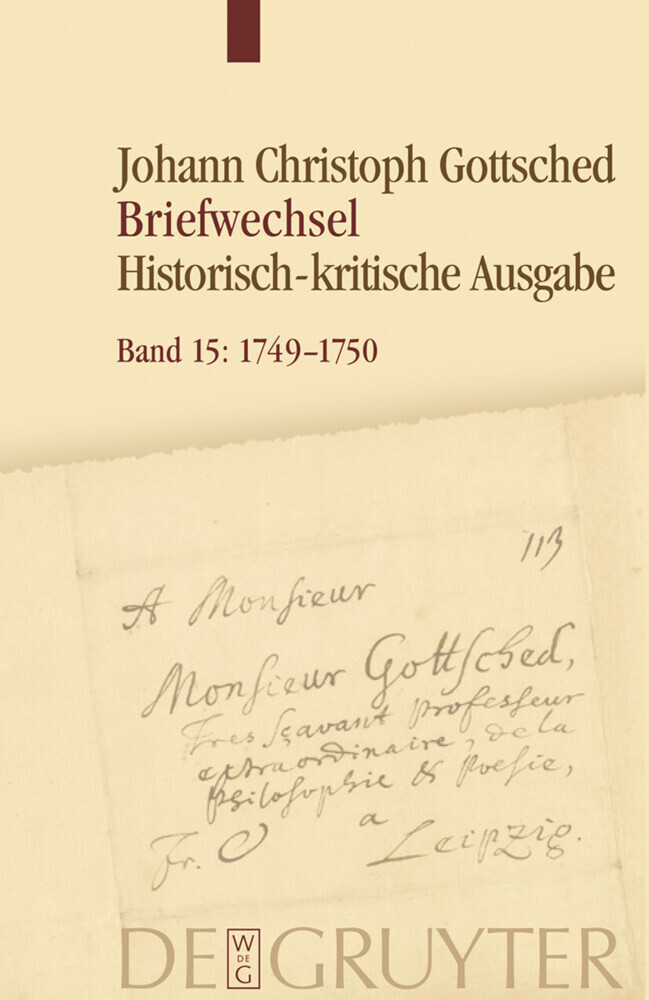 Johann Christoph Gottsched
Briefwechsel
Historisch-kritische Ausgabe
Band 15: 1749–1750
113
A Monsieur
Monsieur Gottsched,
Tres sçavant professeur
extraordinaire, de la
philosophie & Poesie,
a
Leipzig.
Fr.
DE GRUYTER
W
DE
G